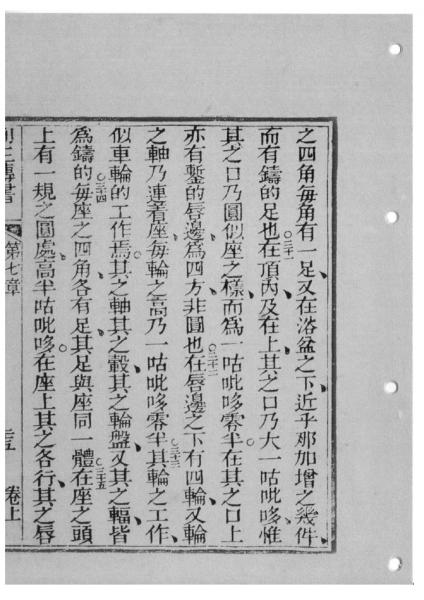 之四角每角有一足又在浴盆之下近乎那加增之幾件
而有鑄的足也○三十一在頂內及在上其之口乃大一咕吡哆惟
其之口乃圓似座之樣而為一咕吡哆零半在其之口上
亦有鏨的唇邊為四方非圓也○三十二在唇邊之下有四輪又輪
之軸乃連着座每輪之高乃一咕吡哆零半○三十三其輪之工作
似車輪的工作焉其之軸其之轂其之輪盤又其之輻皆
為鑄的○三十四每座之四角各有足其足與座同一體○三十五在座之頭
上有一規之圓處高半咕吡哆在座上其之各行其之唇
第七章
卷上